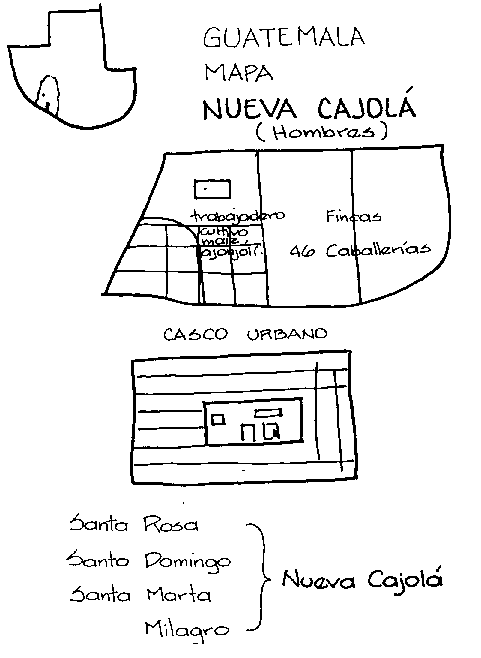 GUATEMALA
MAPA
NUEVA CAJOLÁ
(Hombres)
trabajadero
Fincas
cultivo
maíz,
ajonjolí.
46 Caballerías
CASCO URBANO
Santa Rosa
Santo Domingo
Santa Marta
Milagro
Nueva Cajolá